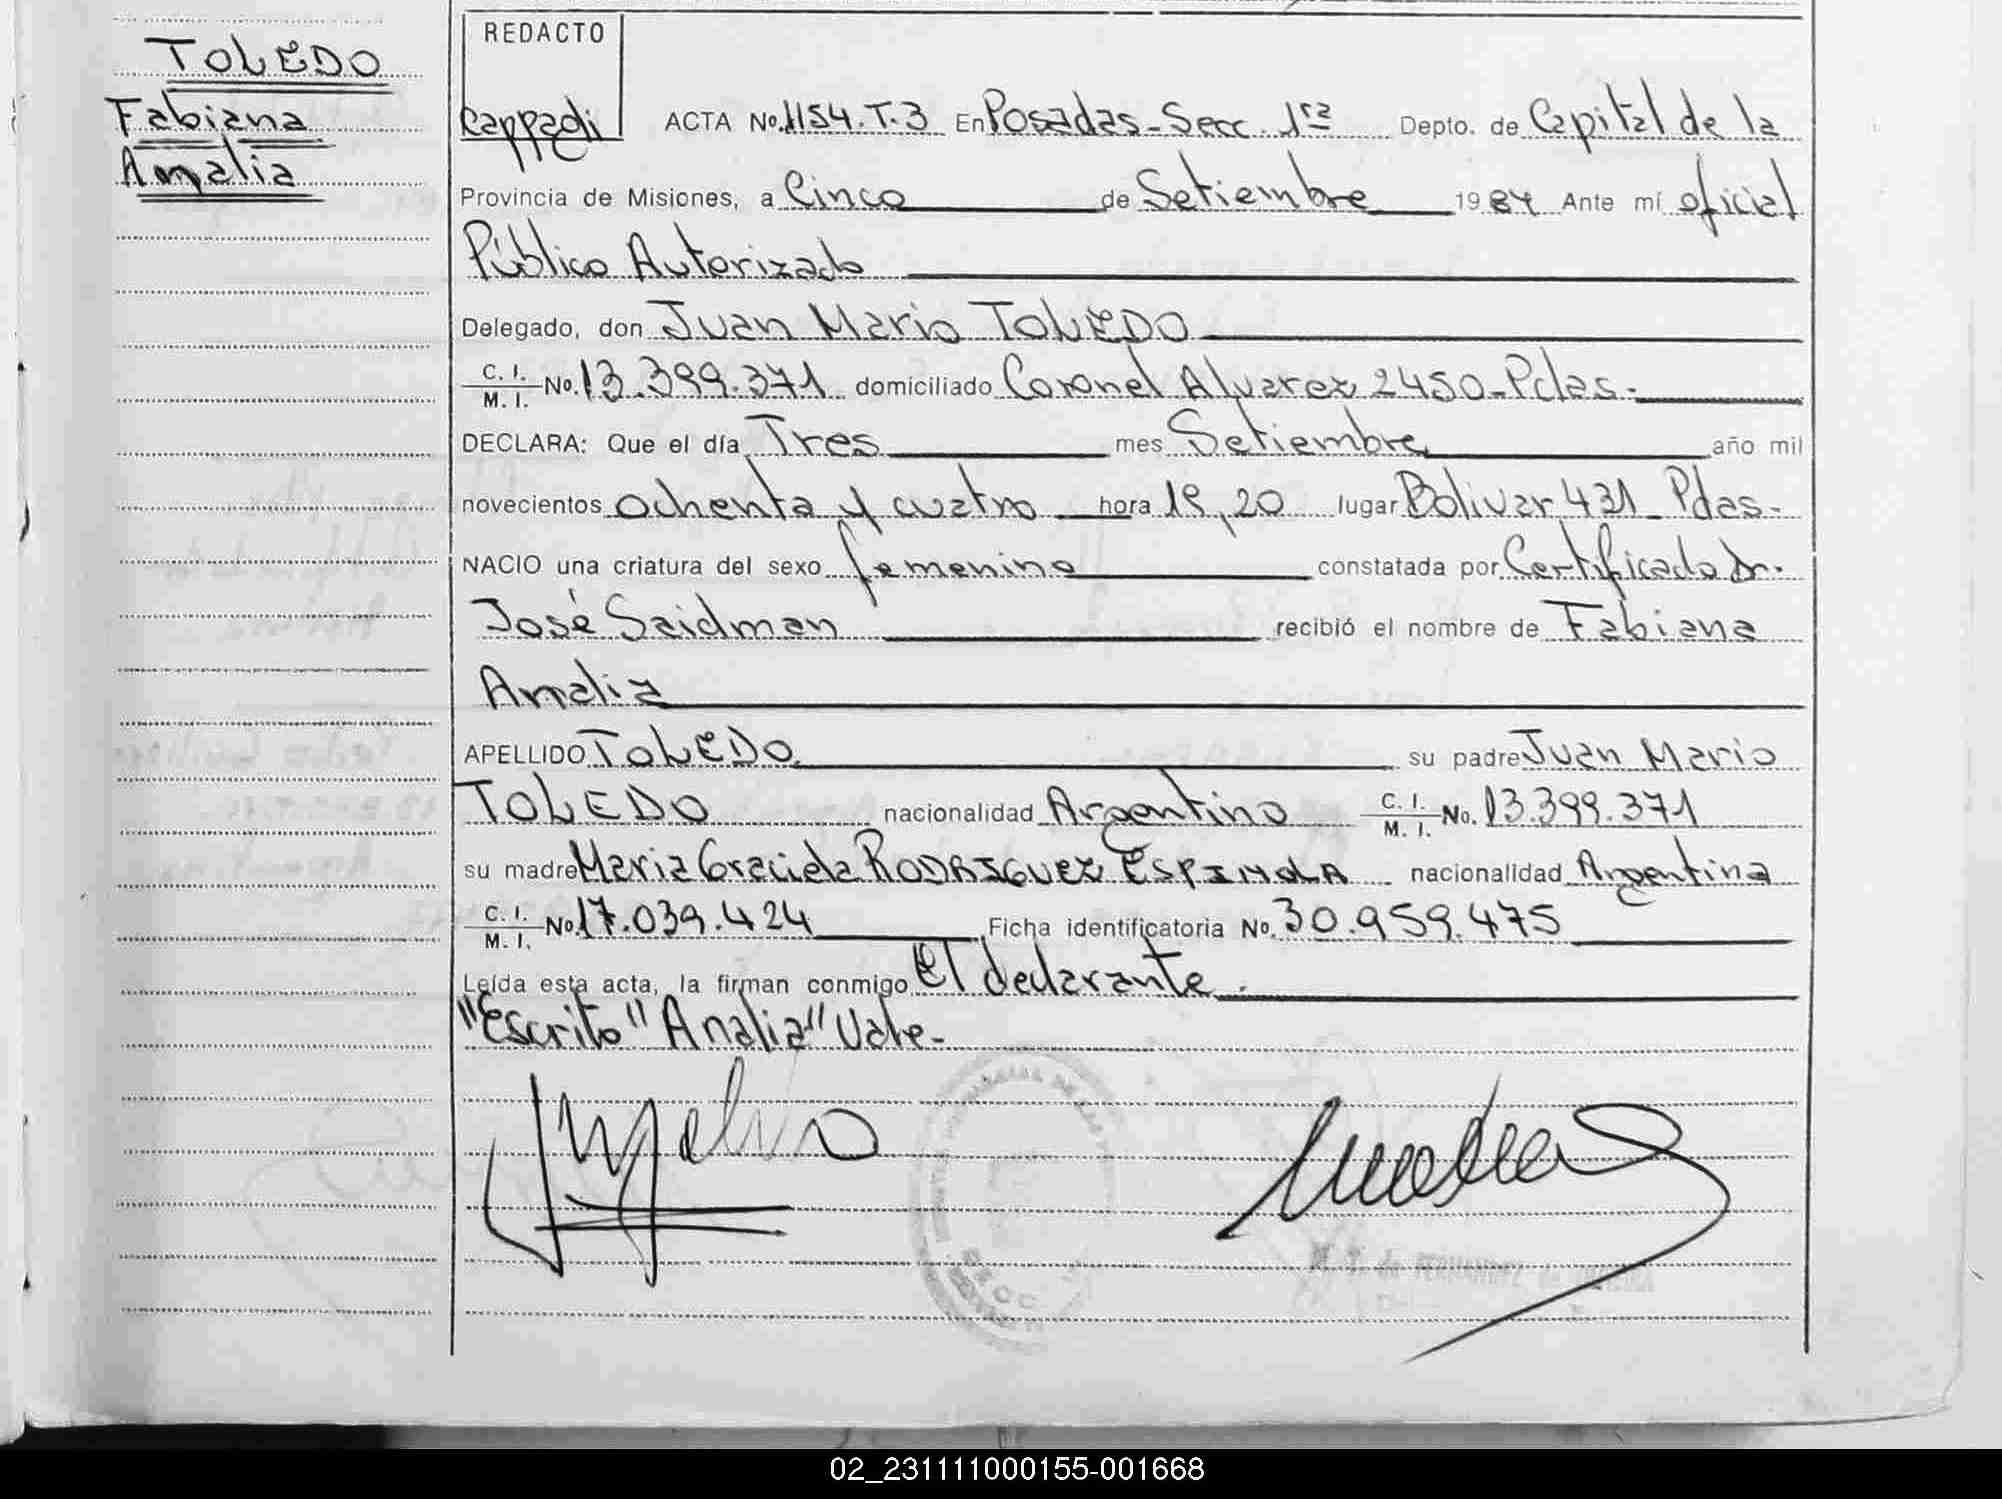 TOLEDO
Fabiana
Amalia
REDACTO
Cappadi
ACTA No. 1154.T.3 En Posadas - Secc. 1ra Depto. de Capital de la
Provincia de Misiones, a Cinco de Setiembre 1984 Ante mí oficial
Público Autorizado
Delegado, don Juan Mario TOLEDO
C. I. / M. I. No. 13.399.371 domiciliado Coronel Alvarez 2450-Pdas.-
DECLARA: Que el día Tres mes Setiembre año mil
novecientos ochenta y cuatro hora 19,20 lugar Bolivar 431 - Pdas-
NACIO una criatura del sexo femenino constatada por Certificado Dr.
José Saidman recibió el nombre de Fabiana
Analia
APELLIDO TOLEDO su padre Juan Mario
TOLEDO nacionalidad Argentino C. I. / M. I. No. 13.399.371
su madre Maria Graciela RODRIGUEZ ESPINOLA nacionalidad Argentina
C. I. / M. I. No. 17.039.424 Ficha identificatoria No. 30.959.475
Leída esta acta, la firman conmigo el declarante.
"Escrito" Analia" Vale-
02_231111000155-001668